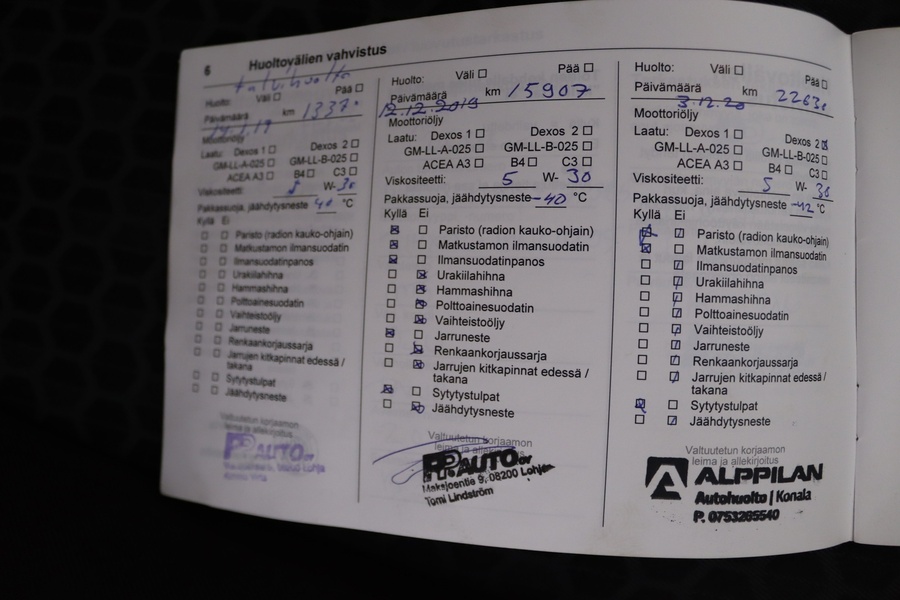 6 Huoltovälien vahvistus
talvihuolto
Huolto: Väli Pää
Päivämäärä km 1337
Moottoriöljy
Laatu: Dexos 1 Dexos 2
GM-LL-A-025 GM-LL-B-025
ACEA A3 B4 C3
Viskositeetti: 5 W- 30
Pakkassuoja, jäähdytysneste 40 °C
Kyllä Ei
Paristo (radion kauko-ohjain)
Matkustamon ilmansuodatin
Ilmansuodatinpanos
Urakiilahihna
Hammashihna
Polttoainesuodatin
Vaihteistoöljy
Jarruneste
Renkaankorjaussarja
Jarrujen kitkapinnat edessä /
takana
Sytytystulpat
Jäähdytysneste
Valtuutetun korjaamon
leima ja allekirjoitus
PPAUTO OY
Huolto: Väli Pää
Päivämäärä km 15907
12.12.2019
Moottoriöljy
Laatu: Dexos 1 Dexos 2
GM-LL-A-025 GM-LL-B-025
ACEA A3 B4 C3
Viskositeetti: 5 W- 30
Pakkassuoja, jäähdytysneste -40 °C
Kyllä Ei
Paristo (radion kauko-ohjain)
Matkustamon ilmansuodatin
Ilmansuodatinpanos
Urakiilahihna
Hammashihna
Polttoainesuodatin
Vaihteistoöljy
Jarruneste
Renkaankorjaussarja
Jarrujen kitkapinnat edessä /
takana
Sytytystulpat
Jäähdytysneste
Valtuutetun korjaamon
leima ja allekirjoitus
PPAUTO OY
Maksjoentie 9, 08200 Lohja
Tomi Lindström
Huolto: Väli Pää
Päivämäärä km
3.12.20
Moottoriöljy
Laatu: Dexos 1 Dexos 2
GM-LL-A-025 GM-LL-B-025
ACEA A3 B4 C3
Viskositeetti: 5 W- 30
Pakkassuoja, jäähdytysneste -42 °C
Kyllä Ei
Paristo (radion kauko-ohjain)
Matkustamon ilmansuodatin
Ilmansuodatinpanos
Urakiilahihna
Hammashihna
Polttoainesuodatin
Vaihteistoöljy
Jarruneste
Renkaankorjaussarja
Jarrujen kitkapinnat edessä /
takana
Sytytystulpat
Jäähdytysneste
Valtuutetun korjaamon
leima ja allekirjoitus
ALPPILAN
Autohuolto | Konala
P. 0753265540